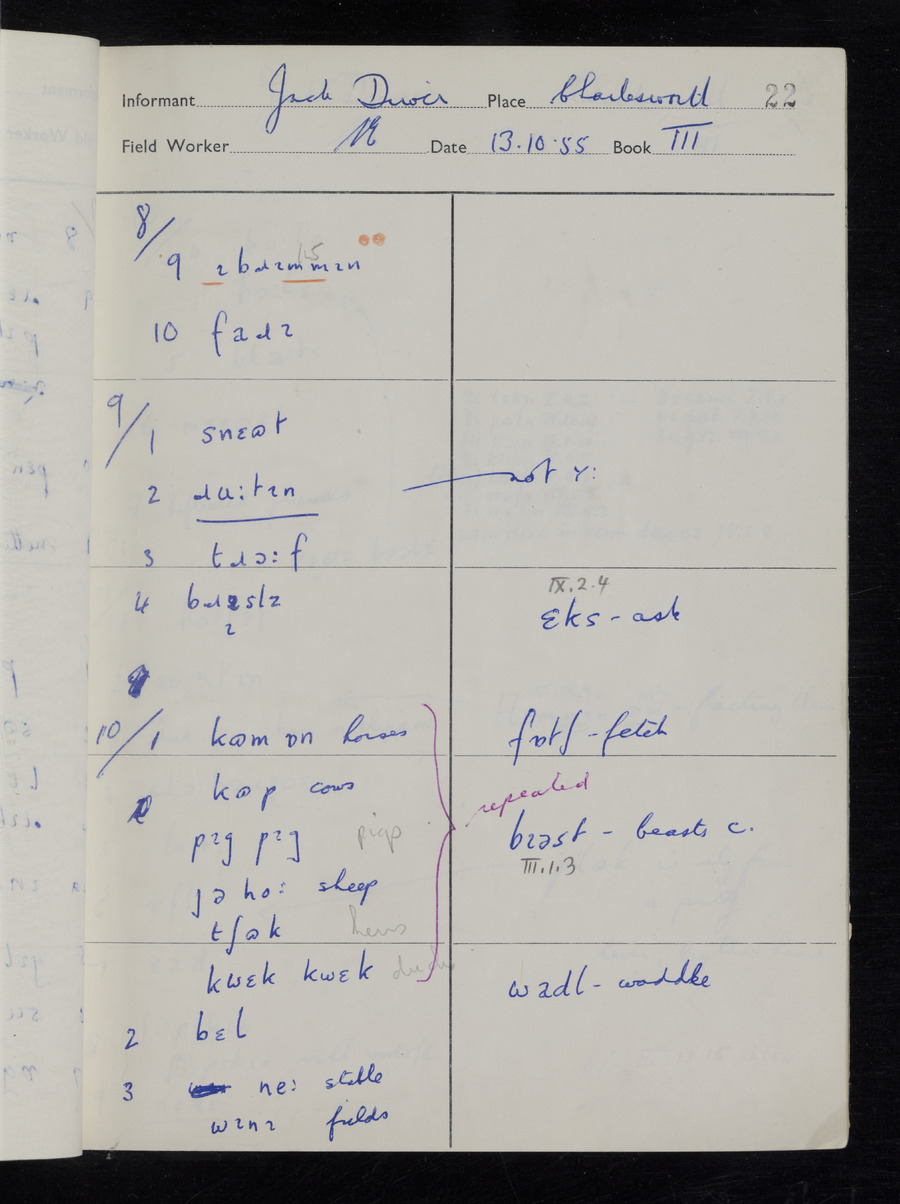 Informant Jack Place Charlesworth 22
Field Worker Date 13.10.55 Book III
8/
9 ɪbɹɪmmɪn
15
10 fadɹ
9/1 snɛɷt
2 ɹu:tɪn not ʏ:
3 tɹɔ:f
4 bɹɪslɪ
ɪ
IX.2.4
ɛks - ask
10/1 kɷm ɒn horses
fɒtʃ - fetch
kɷp cows
repeated
pɪg pɪg pigs
bɪəst - beasts c.
III.1.3
jə ho: sheep
tʃɷk hens
kwɛk kwɛk ducks
wadl - waddle
2 bɛl
3 ne: stable
wɪnɪ fields